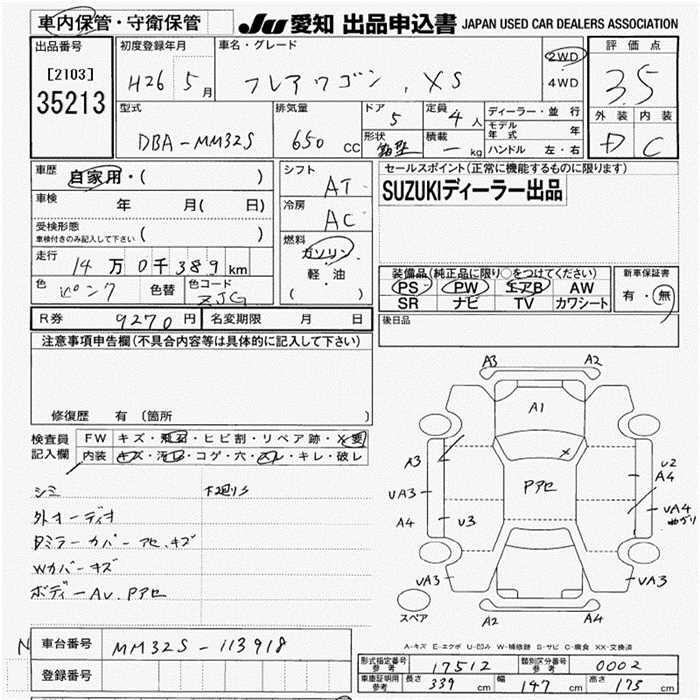 車内保管・守衛保管
JU 愛知 出品申込書 JAPAN USED CAR DEALERS ASSOCIATION
出品番号
[2103]
35213
初度登録年月
H26 5月
車名・グレード
フレアワゴン . XS
2WD
4WD
評価点
3.5
外装 内装
D C
型式
DBA-MM32S
排気量
650 cc
ドア 5
形状 箱型
定員 4人
積載 - kg
ディーラー・並行
モデル年式 年
ハンドル 左・右
車歴 自家用・( )
車検 年 月( 日)
受検形態
車検付きのみ記入して下さい ( )
走行 14万0千389km
色 ピンク 色替 色コード ZJG
シフト AT
冷房 AC
燃料 ガソリン
軽・油
( )
セールスポイント(正常に機能するものに限ります)
SUZUKIディーラー出品
装備品(純正品に限り○をつけてください)
PS PW エアB AW
SR ナビ TV カワシート
新車保証書
有・無
後日品
R券 9270円 名変期限 月 日
注意事項申告欄(不具合内容等は具体的に記入して下さい)
修復歴 有(箇所 )
検査員記入欄
FW キズ・飛石・ヒビ割・リペア跡・X要
内装 キズ・汚れ・コゲ・穴・スレ・キレ・破レ
シミ 下廻リサ
外オーディオ
Dミラーカバーアセ.キズ
Wカバーキズ
ボディーAU.Pアセ
A3 A2
A1
X
Pアセ
A3
UA3
A4
U3
UA3
U2
A4
UA4
曲がり
UA3
A2 A4
スペア
A-キズ E-エクボ U-凹み W-補修跡 S-サビ C-腐食 XX-交換済
N 車台番号 MM32S-113918
登録番号
形式指定番号参考 17512 類別区分番号参考 0002
車庫証明用参考 長さ 339cm 幅 147cm 高さ 175cm